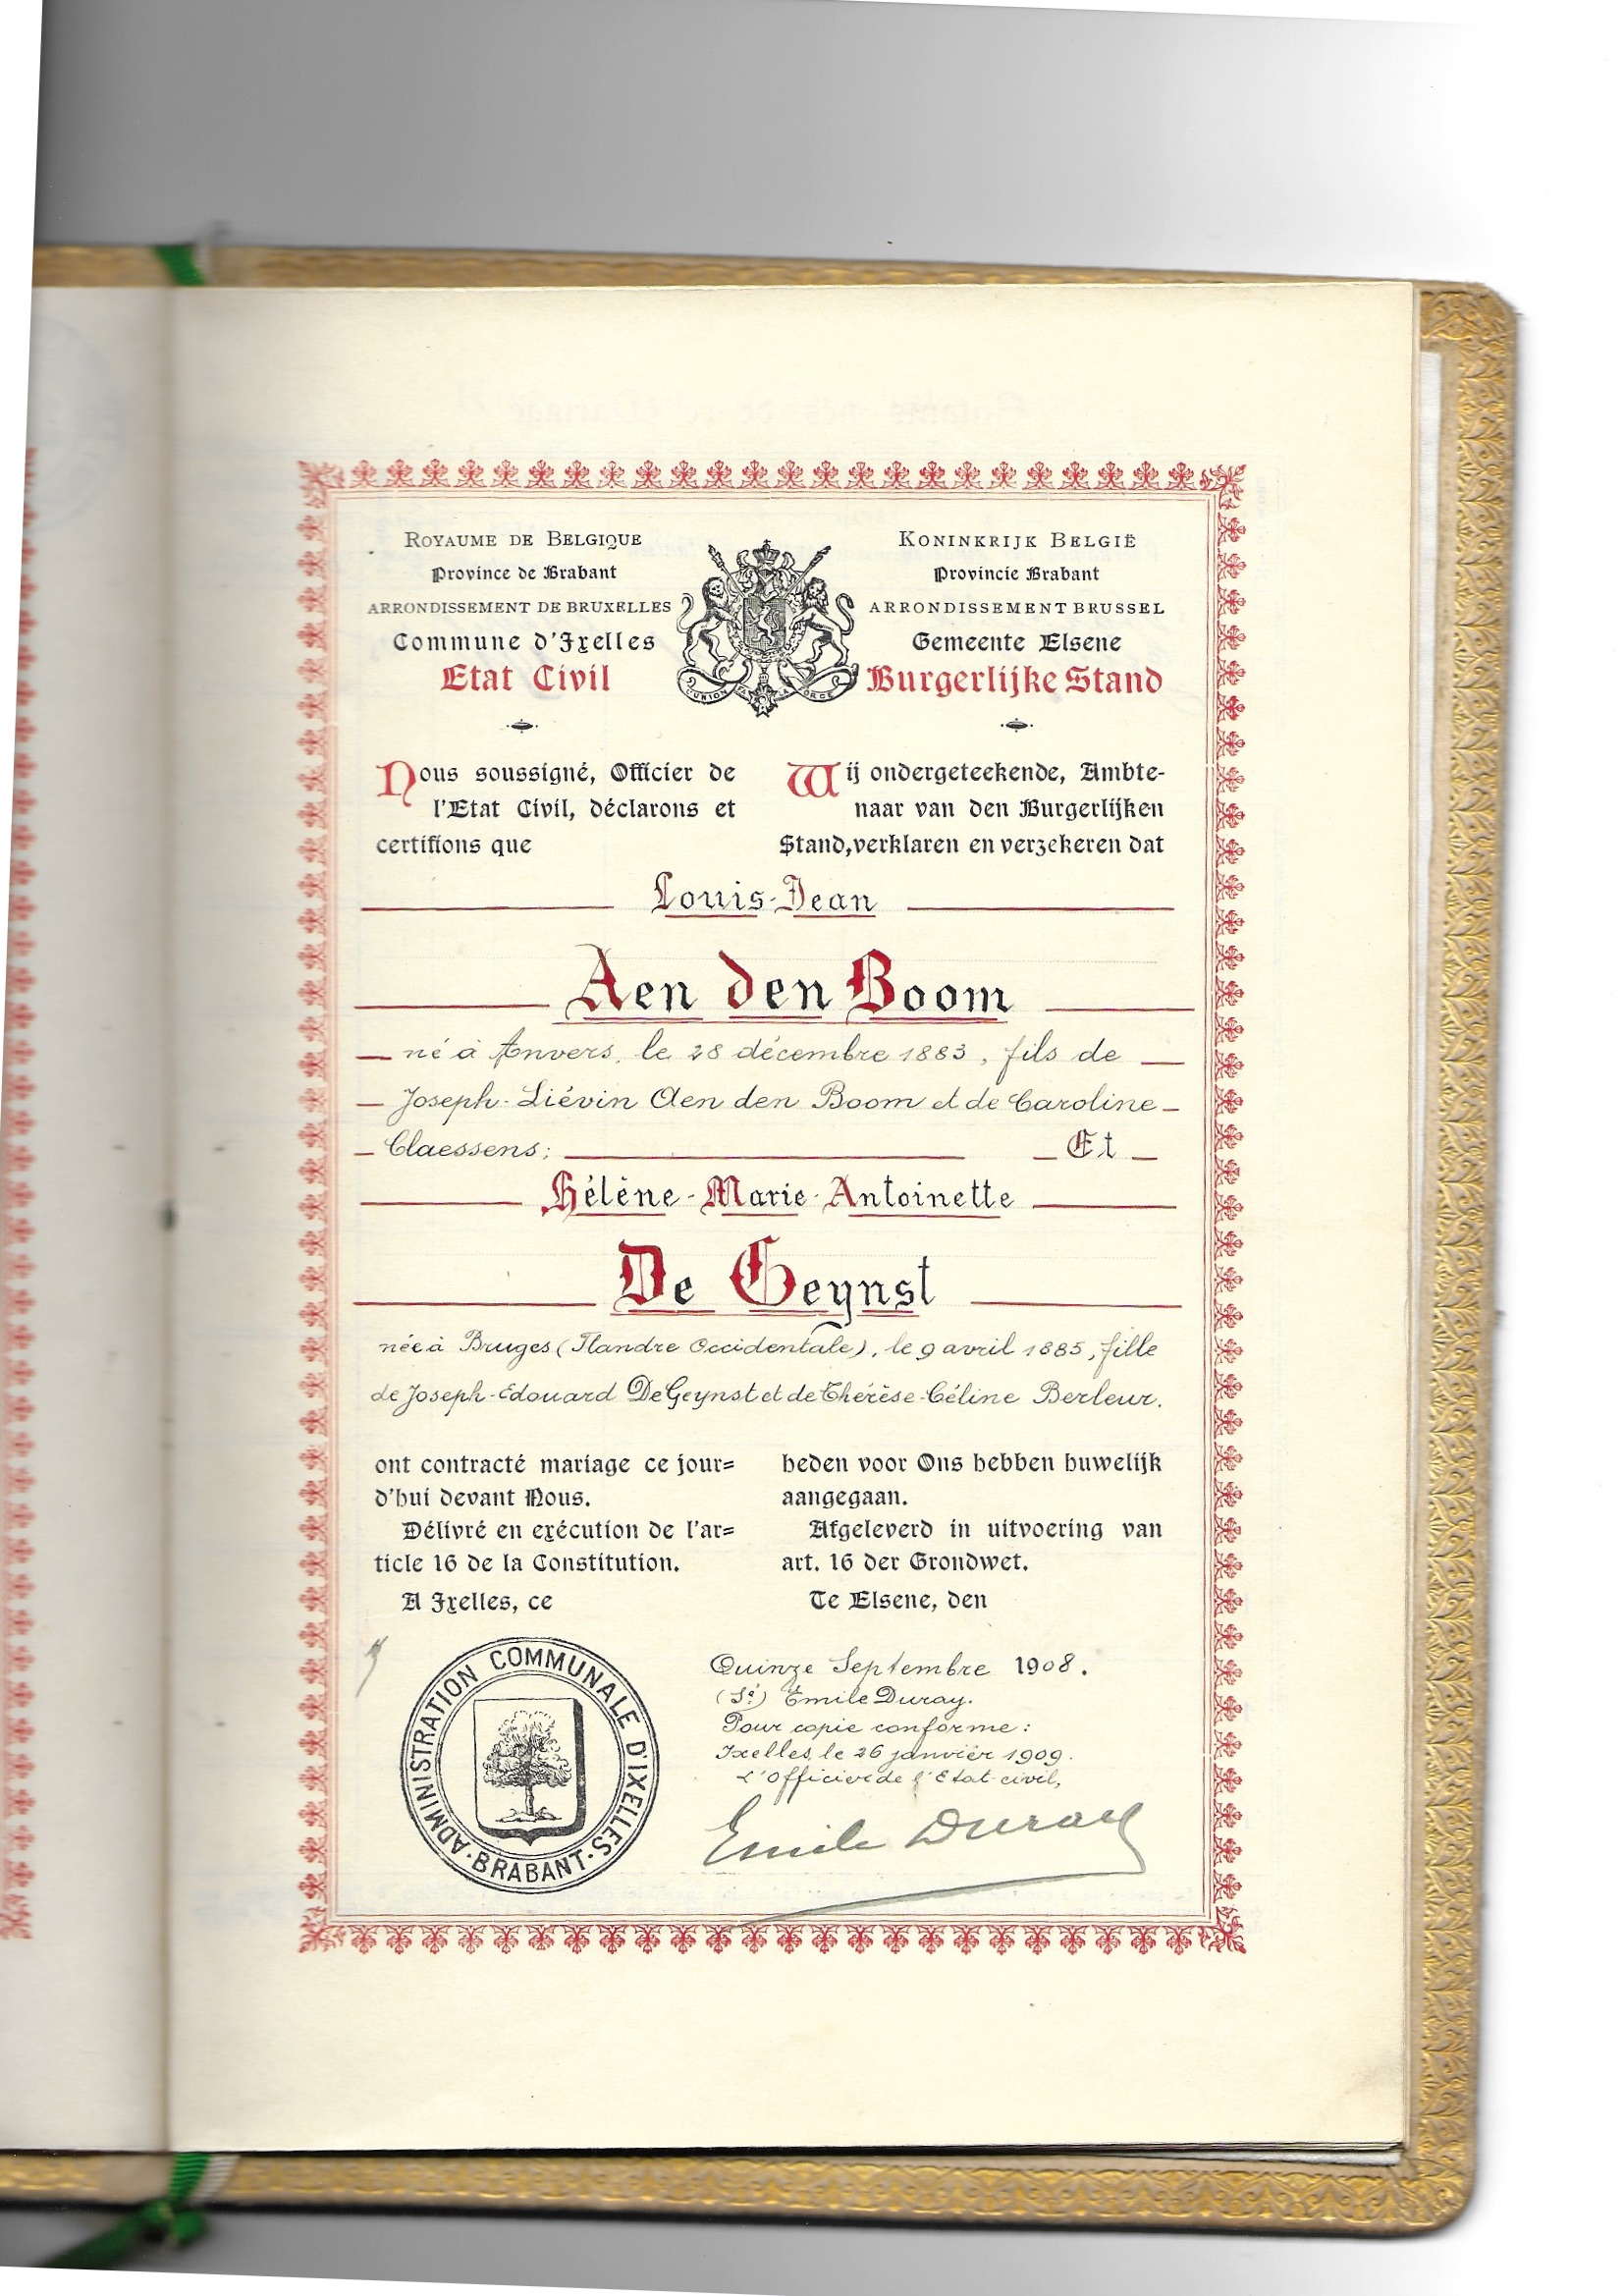 ROYAUME DE BELGIQUE
Province de Brabant
ARRONDISSEMENT DE BRUXELLES
Commune d'Ixelles
Etat Civil
KONINKRIJK BELGIË
Provincie Brabant
ARRONDISSEMENT BRUSSEL
Gemeente Elsene
Burgerlijke Stand
L'UNION FAIT LA FORCE
Nous soussigné, Officier de
l'Etat Civil, déclarons et
certifions que
Wij ondergeteekende, Ambte-
naar van den Burgerlijken
Stand, verklaren en verzekeren dat
Louis-Jean
Aen den Boom
né à Anvers, le 28 décembre 1883, fils de
Joseph-Liévin Aen den Boom et de Caroline
Claessens; Et
Hélène-Marie-Antoinette
De Geynst
née à Bruges (Flandre Occidentale), le 9 avril 1885, fille
de Joseph-Edouard De Geynst et de Thérèse-Céline Berleur.
ont contracté mariage ce jour=
d'hui devant Nous.
Délivré en exécution de l'ar=
ticle 16 de la Constitution.
A Ixelles, ce
heden voor Ons hebben huwelijk
aangegaan.
Afgeleverd in uitvoering van
art. 16 der Grondwet.
Te Elsene, den
Quinze Septembre 1908.
(Sé) Emile Duray.
Pour copie conforme:
Ixelles, le 26 janvier 1909.
L'Officier de l'Etat-civil,
Emile Duray
ADMINISTRATION COMMUNALE D'IXELLES
BRABANT